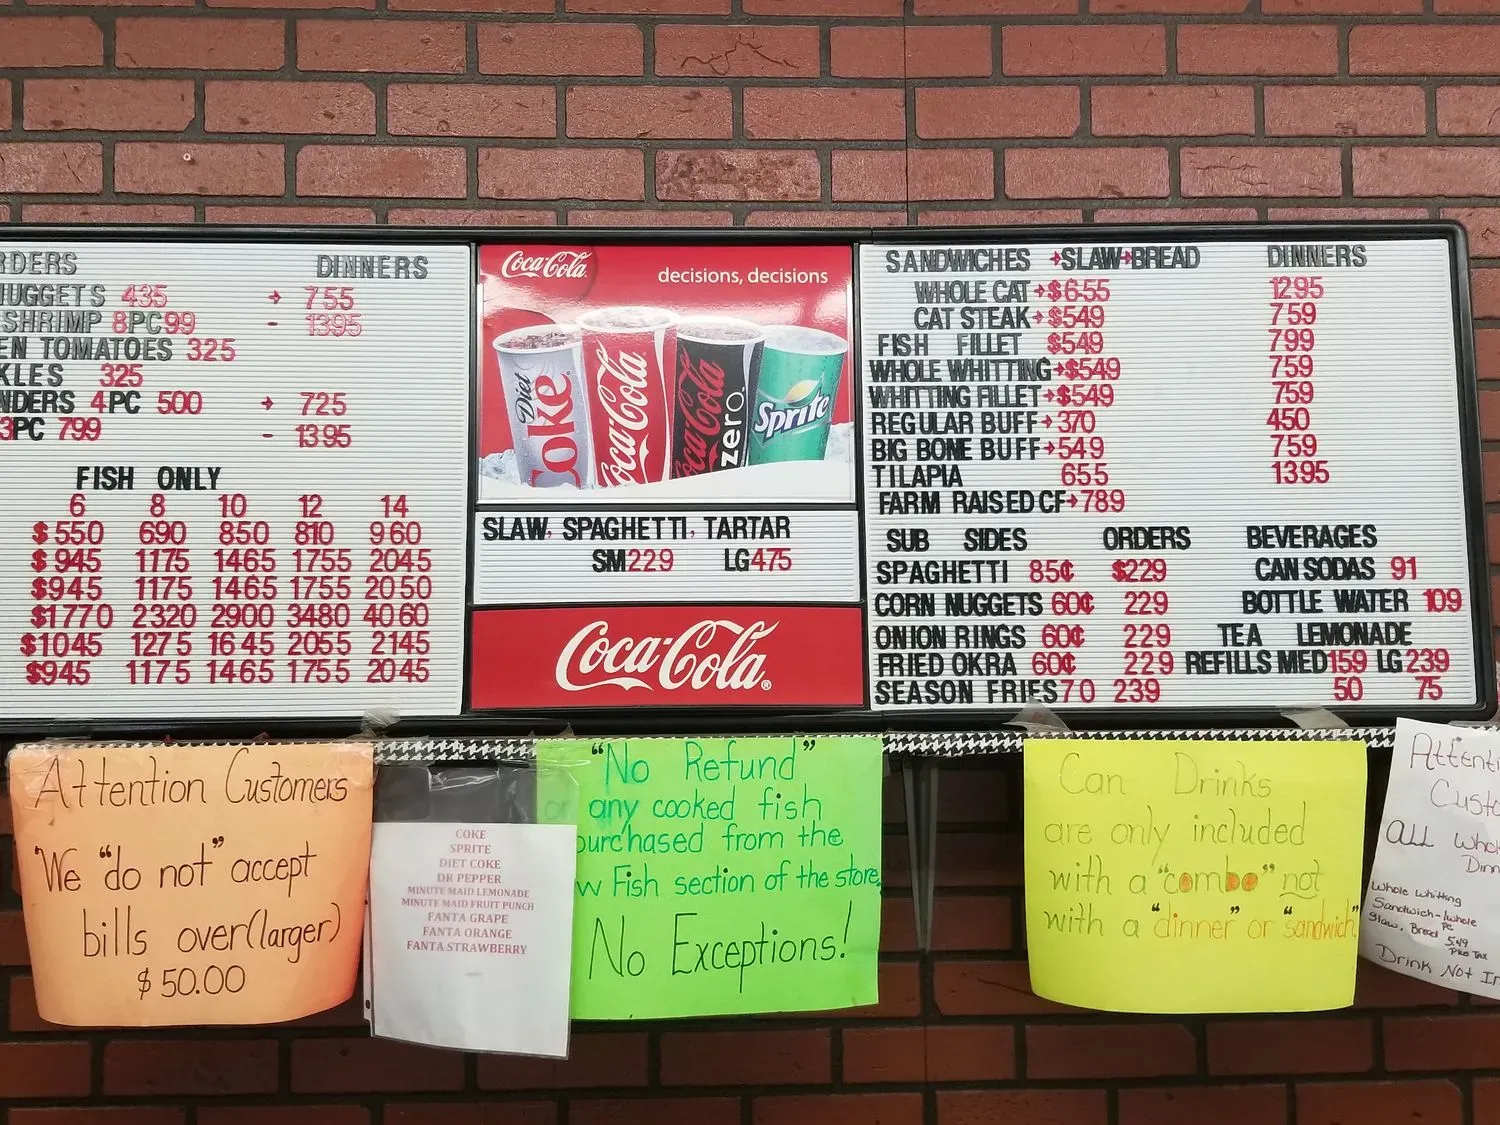 RDERS DINNERS
NUGGETS 435 → 755
SHRIMP 8PC 99 - 1395
EN TOMATOES 325
KLES 325
NDERS 4PC 500 → 725
3PC 799 - 1395
FISH ONLY
6 8 10 12 14
$550 690 850 810 960
$945 1175 1465 1755 2045
$945 1175 1465 1755 2050
$1770 2320 2900 3480 4060
$1045 1275 1645 2055 2145
$945 1175 1465 1755 2045
Coca-Cola decisions, decisions
Diet Coke
Coca-Cola
Coca-Cola zero.
Sprite
SLAW, SPAGHETTI, TARTAR
SM 229 LG 475
Coca-Cola®
SANDWICHES →SLAW→BREAD DINNERS
WHOLE CAT→$655 1295
CAT STEAK→$549 759
FISH FILLET $549 799
WHOLE WHITTING→$549 759
WHITTING FILLET→$549 759
REGULAR BUFF→370 450
BIG BONE BUFF→549 759
TILAPIA 655 1395
FARM RAISED CF→789
SUB SIDES ORDERS BEVERAGES
SPAGHETTI 85¢ $229 CAN SODAS 91
CORN NUGGETS 60¢ 229 BOTTLE WATER 109
ONION RINGS 60¢ 229 TEA LEMONADE
FRIED OKRA 60¢ 229 REFILLS MED 159 LG 239
SEASON FRIES 70 239 50 75
Attention Customers
We "do not" accept
bills over(larger)
$50.00
COKE
SPRITE
DIET COKE
DR PEPPER
MINUTE MAID LEMONADE
MINUTE MAID FRUIT PUNCH
FANTA GRAPE
FANTA ORANGE
FANTA STRAWBERRY
"No Refund"
any cooked fish
purchased from the
w Fish section of the store.
No Exceptions!
Can Drinks
are only included
with a "combo" not
with a "dinner" or "sandwich"
Attenti
Custo
ALL Who
Dinn
Whole Whitting
Sandwich-Whole
Slaw, Bread Pc
5.49
Plus Tax
Drink Not In